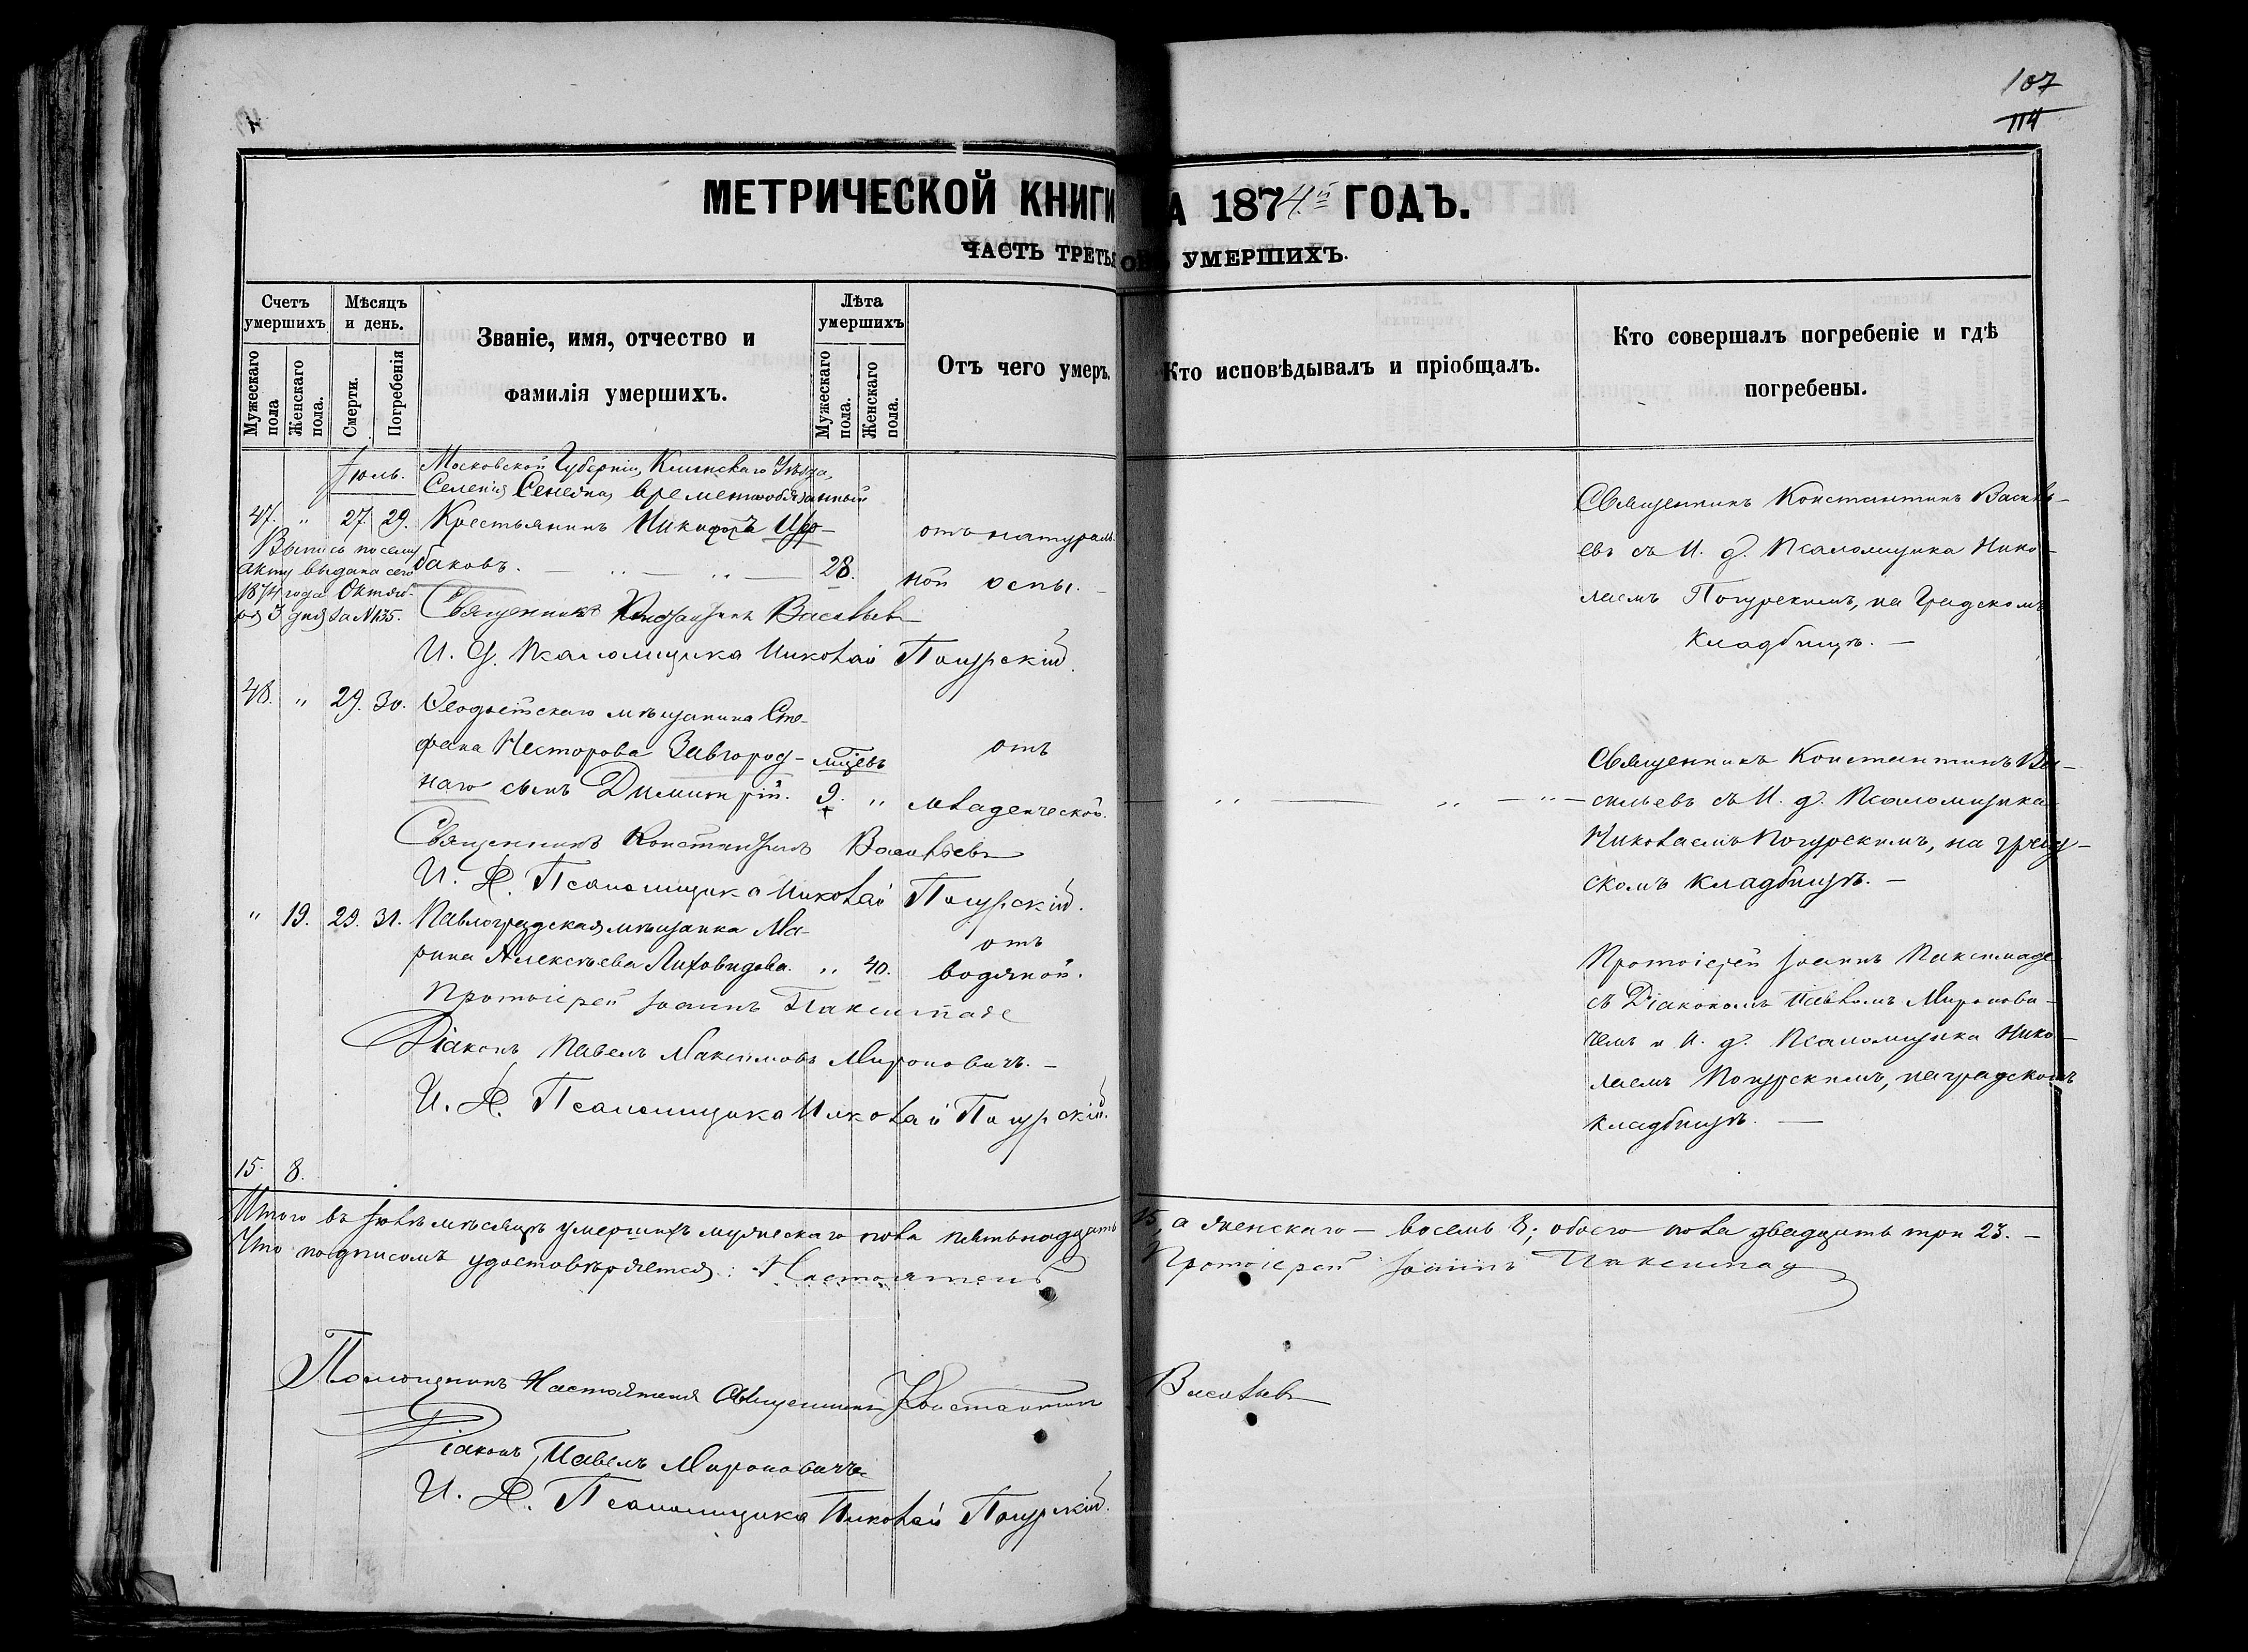 107
114
МЕТРИЧЕСКОЙ КНИГИ А 1874й ГОДЪ.
ЧАСТЬ ТРЕТЬЯ О УМЕРШИХЪ.
Счетъ умершихъ
Мужескаго пола
Женскаго пола.
Мѣсяцъ и день.
Смерти.
Погребенія
Званіе, имя, отчество и
фамилія умершихъ.
Лѣта умершихъ
Мужескаго пола.
Женскаго пола.
Отъ чего умеръ.
Кто исповѣдывалъ и пріобщалъ.
Кто совершалъ погребеніе и гдѣ
погребены.
Іюль.
Московской Губерніи, Клинскаго Уѣзда,
Селенія временнообязанный
47. " 27. 29. Крестьянинъ Никифоръ
баковъ. 28.
отъ натураль-
ной оспы.
Выпись по сему
акту выдана сего
1874 года Октяб-
ря 3 дня за №135.
Священникъ Константинъ Васильевъ
И. д. Псаломщика Николай
Священникъ Константинъ Василь-
евъ съ И. д. Псаломщика Нико-
лаемъ на Градскомъ
кладбищѣ. —
48. " 29. 30. Ѳеодосійскаго мѣщанина Сте-
фана Несторова Завгород-
наго сынъ Димитрій. мѣсяцевъ 9. "
отъ
младенческой.
Священникъ Константинъ Васильевъ
И. Д. Псаломщика Николай
Священникъ Константинъ Ва-
сильевъ съ И. д. Псаломщика
Николаемъ на град-
скомъ кладбищѣ. —
" 19. 29. 31. Павлоградская мѣщанка Ма-
рина Алексѣева Лиховидова. " 40.
отъ
водяной.
Протоіерей Іоаннъ
Діаконъ Павелъ Максимовъ Мироновичъ. —
И. Д. Псаломщика Николай
Протоіерей Іоаннъ
съ Діакономъ Павломъ Миронови-
чемъ и И. д. Псаломщика Нико-
лаемъ на градскомъ
кладбищѣ. —
15. 8.
Итого въ Іюлѣ мѣсяцѣ умершихъ мужескаго пола пятьнадцать 15, а женскаго — восемь 8; обоего пола двадцать три 23. —
Что подписомъ удостовѣряется: Настоятель Протоіерей Іоаннъ
Помощникъ Настоятеля Священникъ Константинъ Васильевъ
Діаконъ Павелъ Мироновичъ
И. Д. Псаломщика Николай